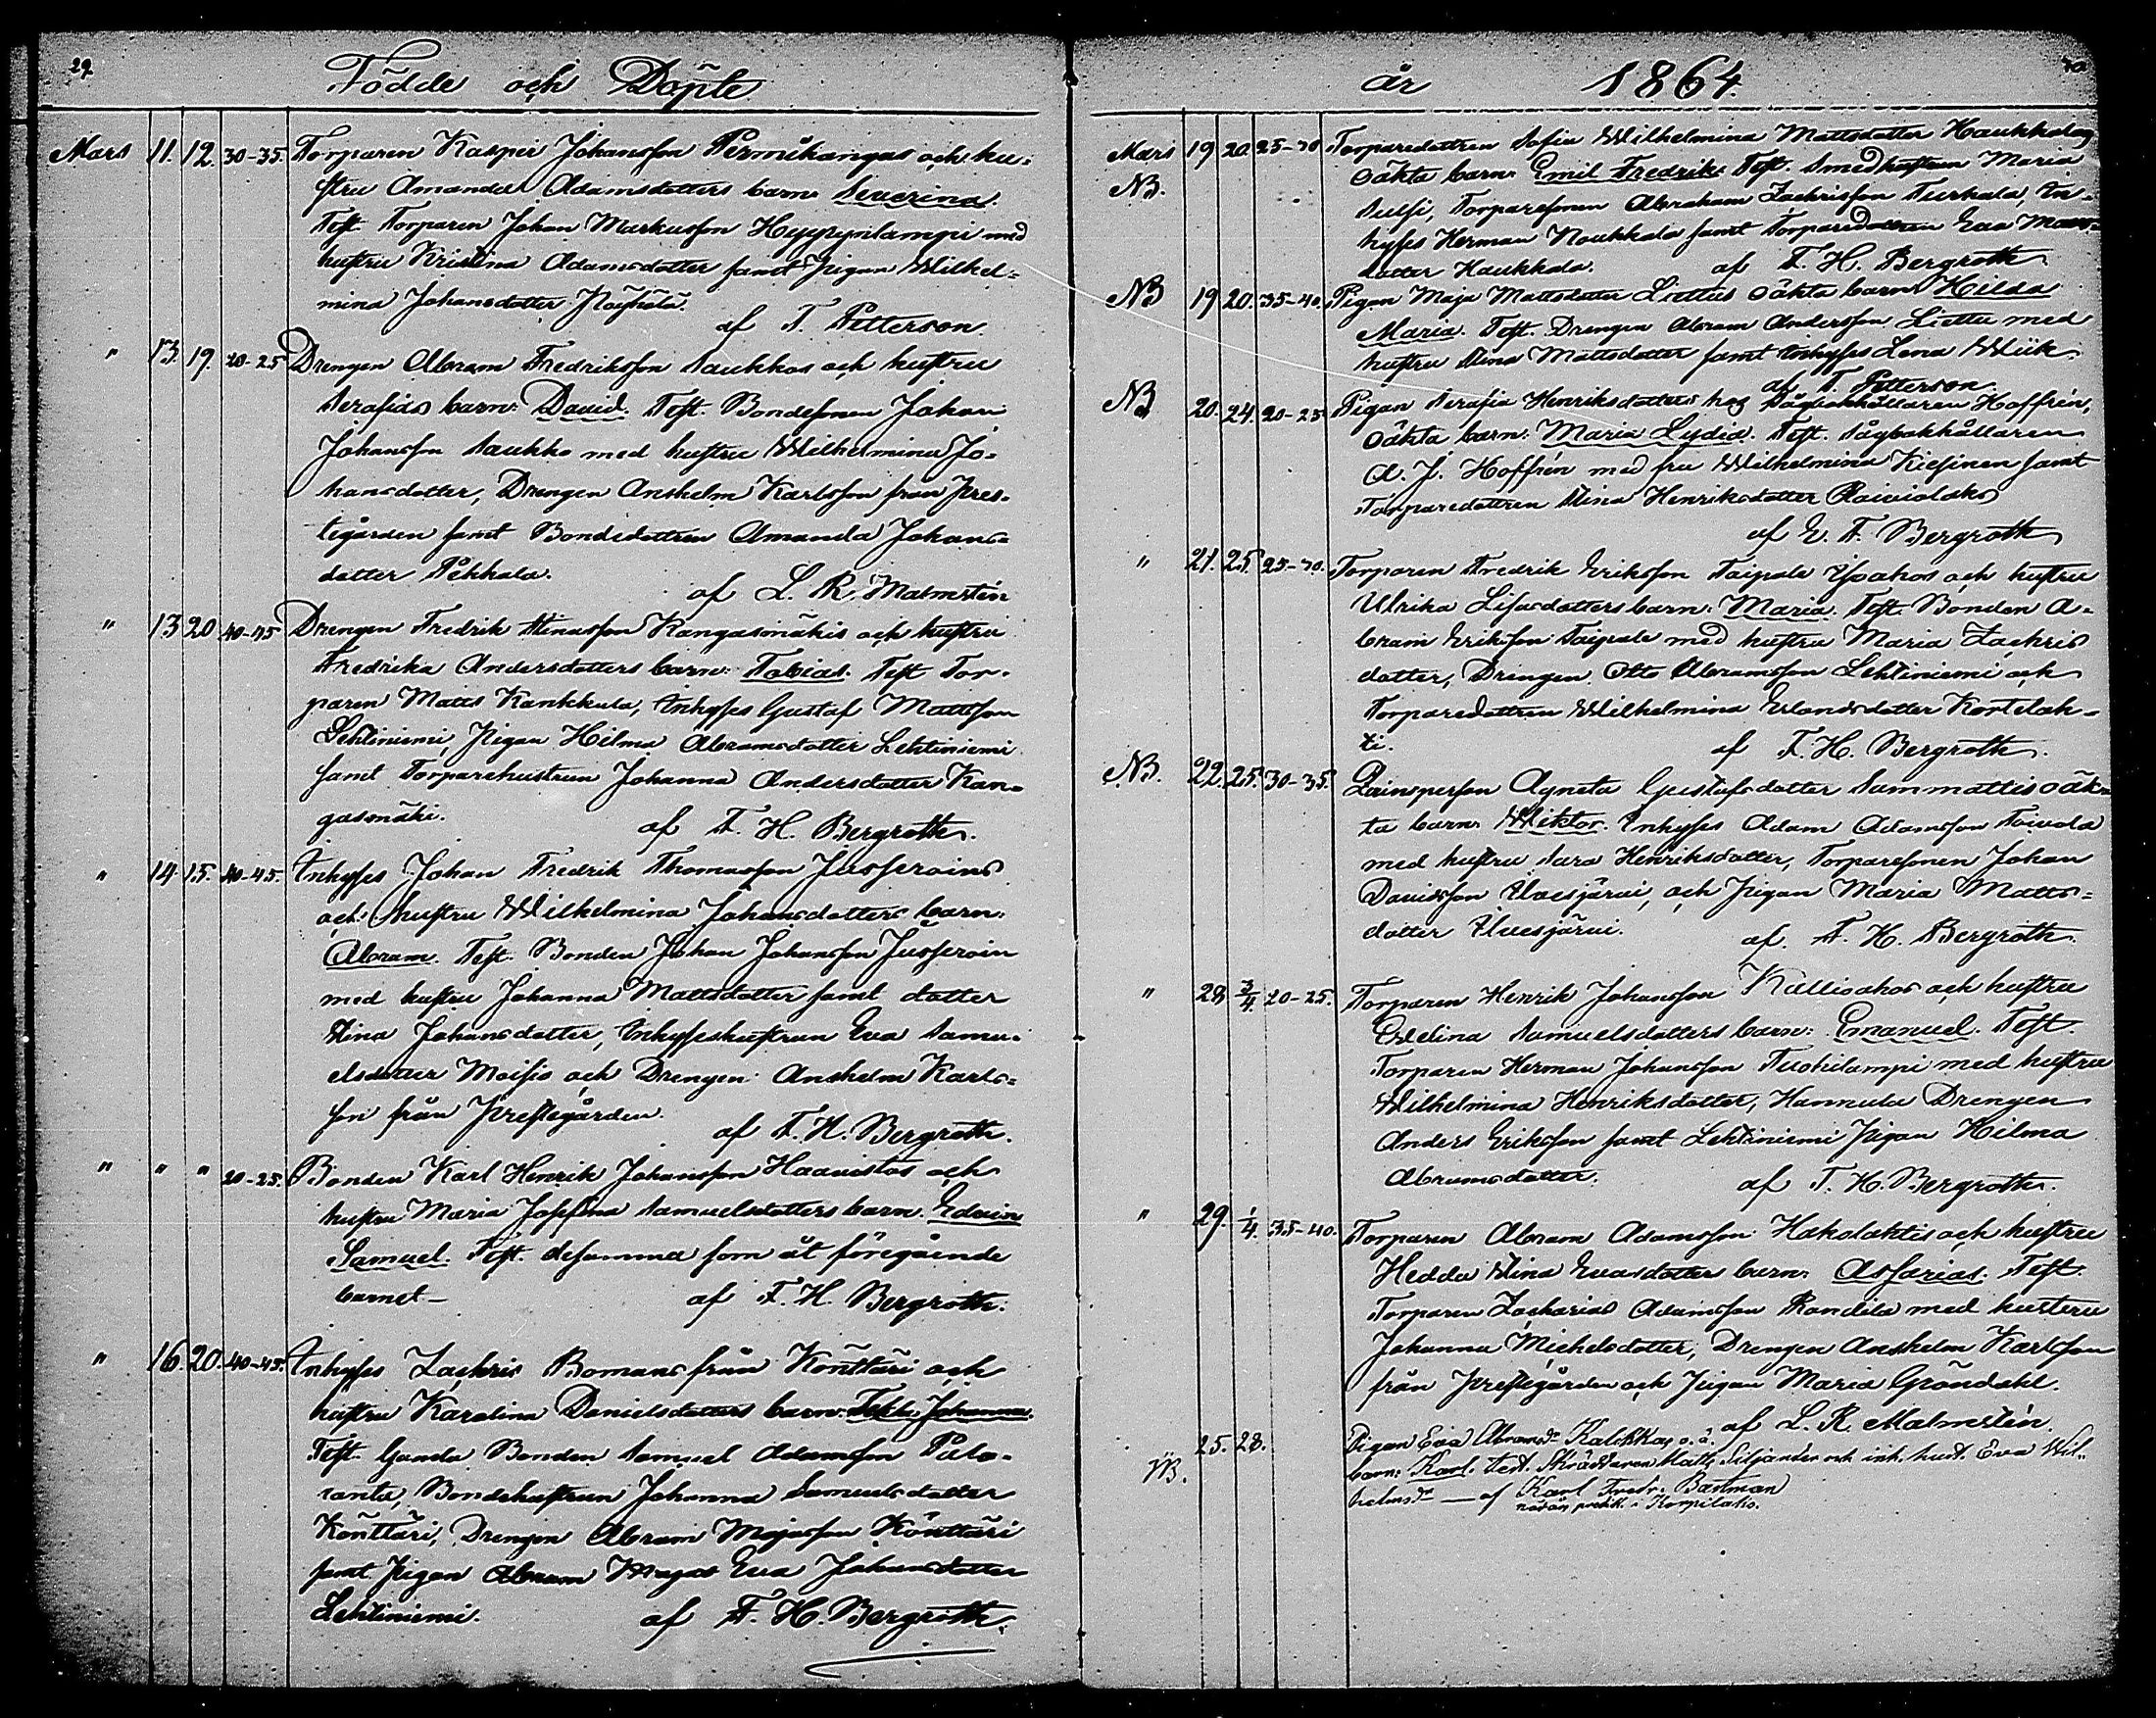 29.
Födde och Döpte
Mars 11. 12. 30-35. Torparen Kasper Johansson Permikangas och hu-
stru Amanda Adamsdotters barn: Severina.
Test. Torparen Johan Markusson Hyyrynlampi med
hustru Kristina Adamsdotter samt Pigan Wilhel=
mina Johansdotter
af T. Petterson.
" 13. 19. 20-25 Drengen Abram Fredriksson Saukkos och hustru
Serafias barn: David. Test. Bondesonen Johan
Johansson Saukko med hustru Wilhelmina Jo-
hansdotter, Drengen Anshelm Karlsson från Pres-
tegården samt Bondedottren Amanda Johans-
dotter Pekkala.
af L. R. Malmstén
" 13 20 40-45 Drengen Fredrik Stinasson Kangasmäkis och hustru
Fredrika Andersdotters barn: Tobias. Test Tor-
paren Matts Kankkula, Inhyses Gustaf Mattsson
Lehtiniemi, Pigan Hilma Abramsdotter Lehtiniemi
samt Torparehustrun Johanna Andersdotter Kan-
gasmäki.
af F. H. Bergroth.
" 14. 15. 40-45. Inhyses Johan Fredrik Thomasson Jusseroins
och hustru Wilhelmina Johansdotters barn:
Abram. Test. Bonden Johan Johansson Jusseroin
med hustru Johanna Mattsdotter samt dotter
Stina Johansdotter, Inhyseshustrun Eva Samu-
elsdotter Moisio och Drengen Anshelm Karls=
son från Prestegården.
af F. H. Bergroth.
" " " 20-25. Bonden Karl Henrik Johansson Haavistos och
hustru Maria Josefina Samuelsdotters barn. Edvin
Samuel. Test. desamma som åt föregående
barnet.—
af F. H. Bergroth.
" 16. 20. 40-45. Inhyses Zachris Bomans från Konttäri och
hustru Karolina Danielsdotters barn: Johanna.
Test. Bonden Samuel Adamsson Palo-
ranta, Bondehustrun Johanna Samuelsdotter
Könttäri, Drengen Abram Majasson Könttäri
samt Pigan Abram Eva Johansdotter
Lehtiniemi.
af F. H. Bergroth.
år 1864.
Mars 19 20. 25-30 Torparedottren Sofia Wilhelmina Mattsdotter Haukkalas
NB. oäkta barn: Emil Fredrik. Test. Smedhustrun Maria
Torparesonen Abraham Zachrisson Turkala, In-
hyses Herman Haukkala samt Torparedottren Eva Matts-
dotter Haukkala.
af F. H. Bergroth
NB 19 20. 35-40. Pigan Maja Mattsdotter Liettus oäkta barn: Hilda
Maria. Test. Drengen Abram Andersson Liettu med
hustru Stina Mattsdotter samt Inhyses Lena Wiik
af T. Petterson.
NB 20. 24. 20-25 Pigan Serafia Henriksdotters hos Sågbokhållaren Hoffrén,
oäkta barn: Maria Lydia. Test. Sågbokhållaren
A. J. Hoffrén med fru Wilhelmina Kiesinen samt
Torparedottren Stina Henriksdotter
af E. F. Bergroth
" 21. 25. 25-30. Torparen Fredrik Eriksson Taipale Ysakos och hustru
Ulrika Lisasdotters barn: Maria. Test Bonden A-
bram Eriksson Taipale med hustru Maria Zachris
dotter, Drengen Otto Abramsson Lehtiniemi och
Torparedottren Wilhelmina Erlandsdotter Kortelah-
ti.
af F. H. Bergroth.
NB. 22. 25. 30-35. Qvinsperson Agneta Gustafsdotter Sammattis oäk-
ta barn: Wiktor. Inhyses Adam Adamsson Toivola
med hustru Sara Henriksdotter, Torparesonen Johan
Davidsson Uvesjärvi, och Pigan Maria Matts=
dotter Uvesjärvi.
af F. H. Bergroth.
" 28. 3/4. 20-25. Torparen Henrik Johansson Kallioahos och hustru
Evelina Samuelsdotters barn: Emanuel. Test.
Torparen Herman Johansson Tuohilampi med hustru
Wilhelmina Henriksdotter, Hannula Drengen
Anders Eriksson samt Lehtiniemi Pigan Hilma
Abramsdotter.
af F. H. Bergroth.
" 29. 1/4. 35-40. Torparen Abram Adamsson Hakolahtis och hustru
Hedda Stina Evasdotters barn: Assarias. Test.
Torparen Zacharias Adamsson Randila med hustru
Johanna Michelsdotter, Drengen Anshelm Karlsson
från Prestegården och Pigan Maria Gröndahl.
af L. R. Malmstén.
NB. 25. 28. Pigan Eva Abramsdr Kalikkas o. ä.
barn: Karl. Test. Skräddaren Matts Siljander och inh. hust. Eva Wil-
helmsdr — af Karl Fredr. Bastman
nådår. predik. i Korpilaks.